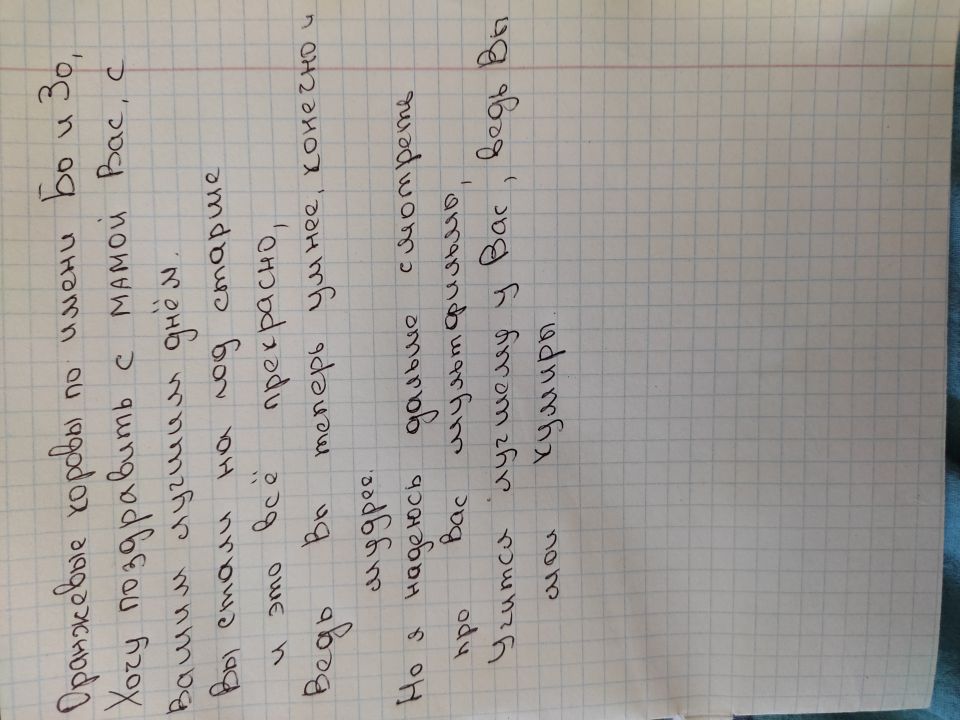 Оранжевые коровы по имени Бо и Зо,
Хочу поздравить с МАМОЙ Вас, с
Вашим лучшим днём.
Вы стали на год старше
и это всё прекрасно,
Ведь Вы теперь умнее, конечно и
мудрее.
Но я надеюсь дальше смотреть
про Вас мультфильмы,
Учится лучшему у Вас, ведь Вы
мои кумиры.